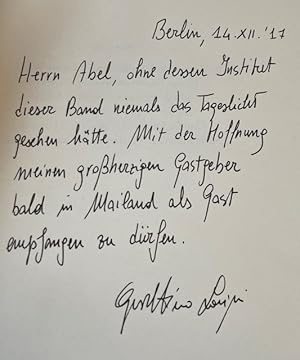 Berlin, 14.XII.'17
Herrn Abel, ohne dessen Institut
dieser Band niemals das Tageslicht
gesehen hätte. Mit der Hoffnung
meinen großherzigen Gastgeber
bald in Mailand als Gast
empfangen zu dürfen.